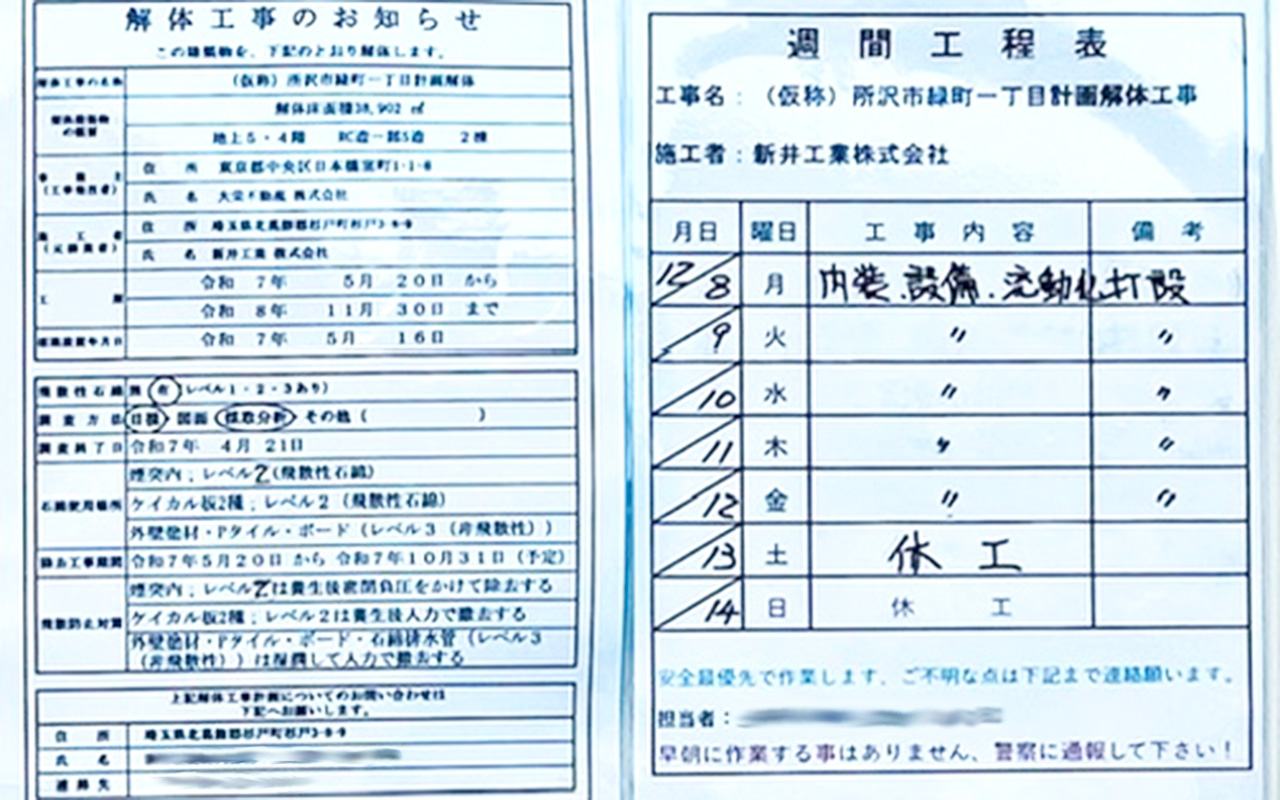 解体工事のお知らせ
この建築物を、下記のとおり解体します。
解体工事の名称 (仮称)所沢市緑町一丁目計画解体
解体床面積38,902 ㎡
地上5・4階 RC造一部S造 2棟
住所 東京都中央区日本橋室町1-1-8
(工事発注者)
氏名 大栄不動産 株式会社
施工者 住所 埼玉県北葛飾郡杉戸町杉戸3-8-9
(元請業者) 氏名 新井工業 株式会社
工期 令和 7年 5月 20日 から
令和 8年 11月 30日 まで
標識設置年月日 令和 7年 5月 16日
飛散性石綿 無 有 (レベル1・2・3あり)
調査方法 目視 図面 採取分析 その他 ( )
調査終了日 令和7年 4月 21日
煙突内;レベル2(飛散性石綿)
石綿使用場所 ケイカル板2種;レベル2 (飛散性石綿)
外壁塗材・Pタイル・ボード (レベル3 (非飛散性))
除去工事期間 令和7年5月20日 から 令和7年10月31日 (予定)
煙突内;レベル2は養生後密閉負圧をかけて除去する
飛散防止対策 ケイカル板2種;レベル2は養生後人力で撤去する
外壁塗材・Pタイル・ボード・石綿排水管 (レベル3
(非飛散性))は湿潤して人力で撤去する
上記解体工事計画についてのお問い合わせは
下記へお願いします。
住所 埼玉県北葛飾郡杉戸町杉戸3-8-9
氏名
連絡先
週間工程表
工事名:(仮称)所沢市緑町一丁目計画解体工事
施工者:新井工業株式会社
月日 曜日 工事内容 備考
12/8 月 内装.設備.流動化打設
/9 火 〃 〃
/10 水 〃 〃
/11 木 〃 〃
/12 金 〃 〃
/13 土 休工
/14 日 休工
安全最優先で作業します、ご不明な点は下記まで連絡願います。
担当者:
早朝に作業する事はありません、警察に通報して下さい!